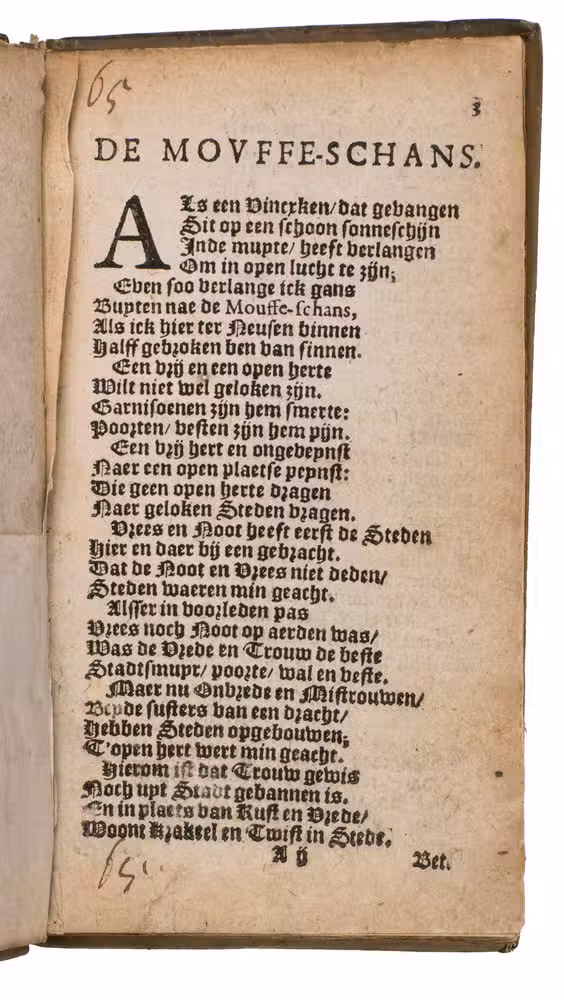 65
3
DE MOVFFE-SCHANS.
ALs een Vincxken/dat gevangen
Sit op een schoon sonneschijn
Inde muyte/ heeft verlangen
Om in open lucht te zijn;
Even soo verlange ick gans
Buyten nae de Mouffe-schans,
Als ick hier ter Neusen binnen
Halff gebroken ben van sinnen.
Een vrij en een open herte
Wilt niet wel geloken zijn.
Garnisoenen zijn hem smerte:
Poorten/ vesten zijn hem pijn.
Een vrij hert en ongeveynst
Naer een open plaetse peynst:
Die geen open herte dragen
Naer geloken Steden vragen.
Vrees en Noot heeft eerst de Steden
Hier en daer bij een gebracht.
Dat de Noot en Vrees niet deden/
Steden waeren min geacht.
Alsser in voorleden pas
Vrees noch Noot op aerden was/
Was de Vrede en Trouw de beste
Stadtsmuyr/ poorte/ wal en veste.
Maer nu Onvrede en Mistrouwen/
Beyde susters van een dracht/
Hebben Steden opgebouwen;
T'open hert wert min geacht.
Hierom ist dat Trouw gewis
Noch uyt Stadt gebannen is.
En in plaets van Rust en Vrede/
Woont Krakeel en Twist in Stede.
A ij
Bet.
65.